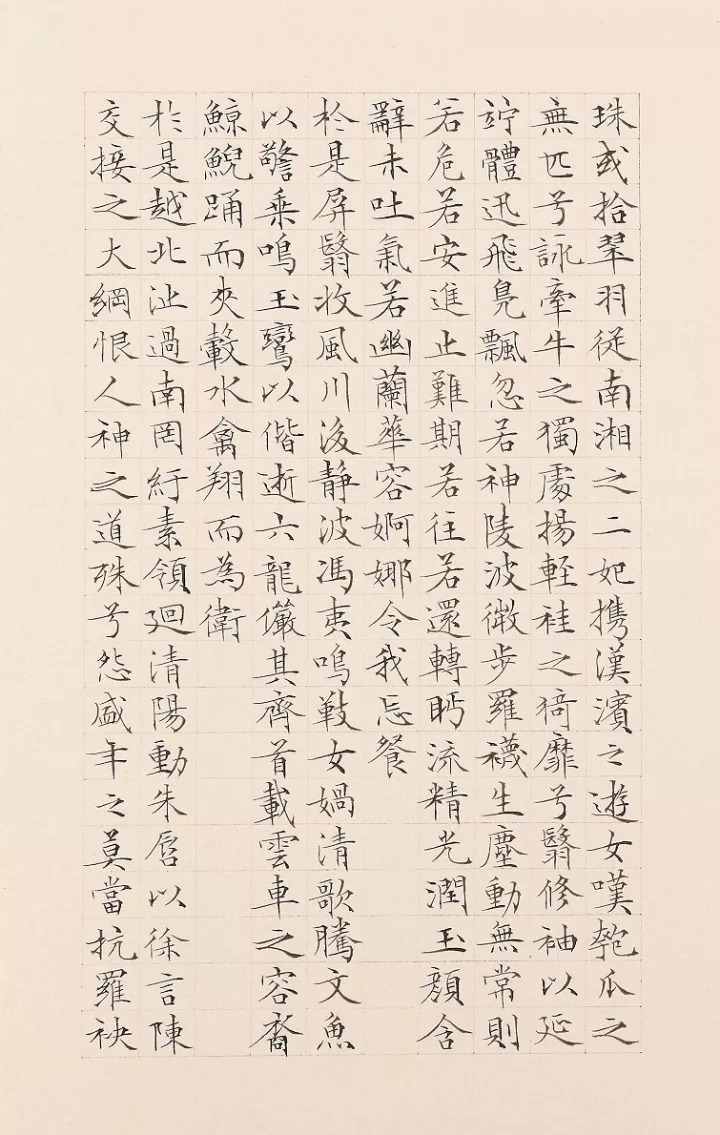 珠或拾翠羽從南湘之二妃攜漢濱之遊女嘆匏瓜之
無匹兮詠牽牛之獨處揚輕袿之猗靡兮翳修袖以延
竚體迅飛鳧飄忽若神陵波微步羅襪生塵動無常則
若危若安進止難期若往若還轉眄流精光潤玉顏含
辭未吐氣若幽蘭華容婀娜令我忘餐
於是屏翳收風川後靜波馮夷鳴鼓女媧清歌騰文魚
以警乘鳴玉鸞以偕逝六龍儼其齊首載雲車之容裔
鯨鯢踊而夾轂水禽翔而為衛
於是越北沚過南岡紆素領迴清陽動朱唇以徐言陳
交接之大綱恨人神之道殊兮怨盛年之莫當抗羅袂